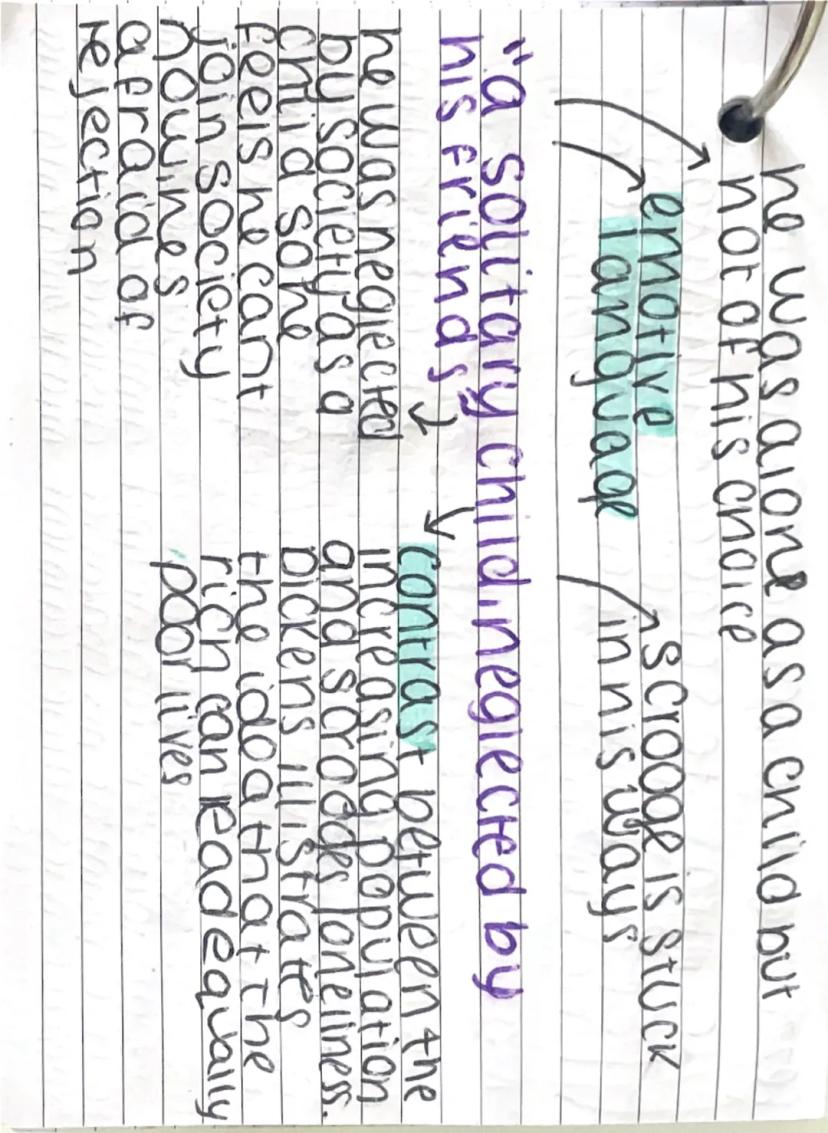 he was alone as a child but
not of his choice
emotive
language
scrooge is stuck
in his ways
"a solitary child, neglected by
his friends"
he was neglected
by society as a
child so he
feels he cant
join society
now, hes
afraid of
rejection
contrast between the
increasing population
and scrooges loneliness.
Dickens illistrates
the idea that the
rich can lead equally
poor lives